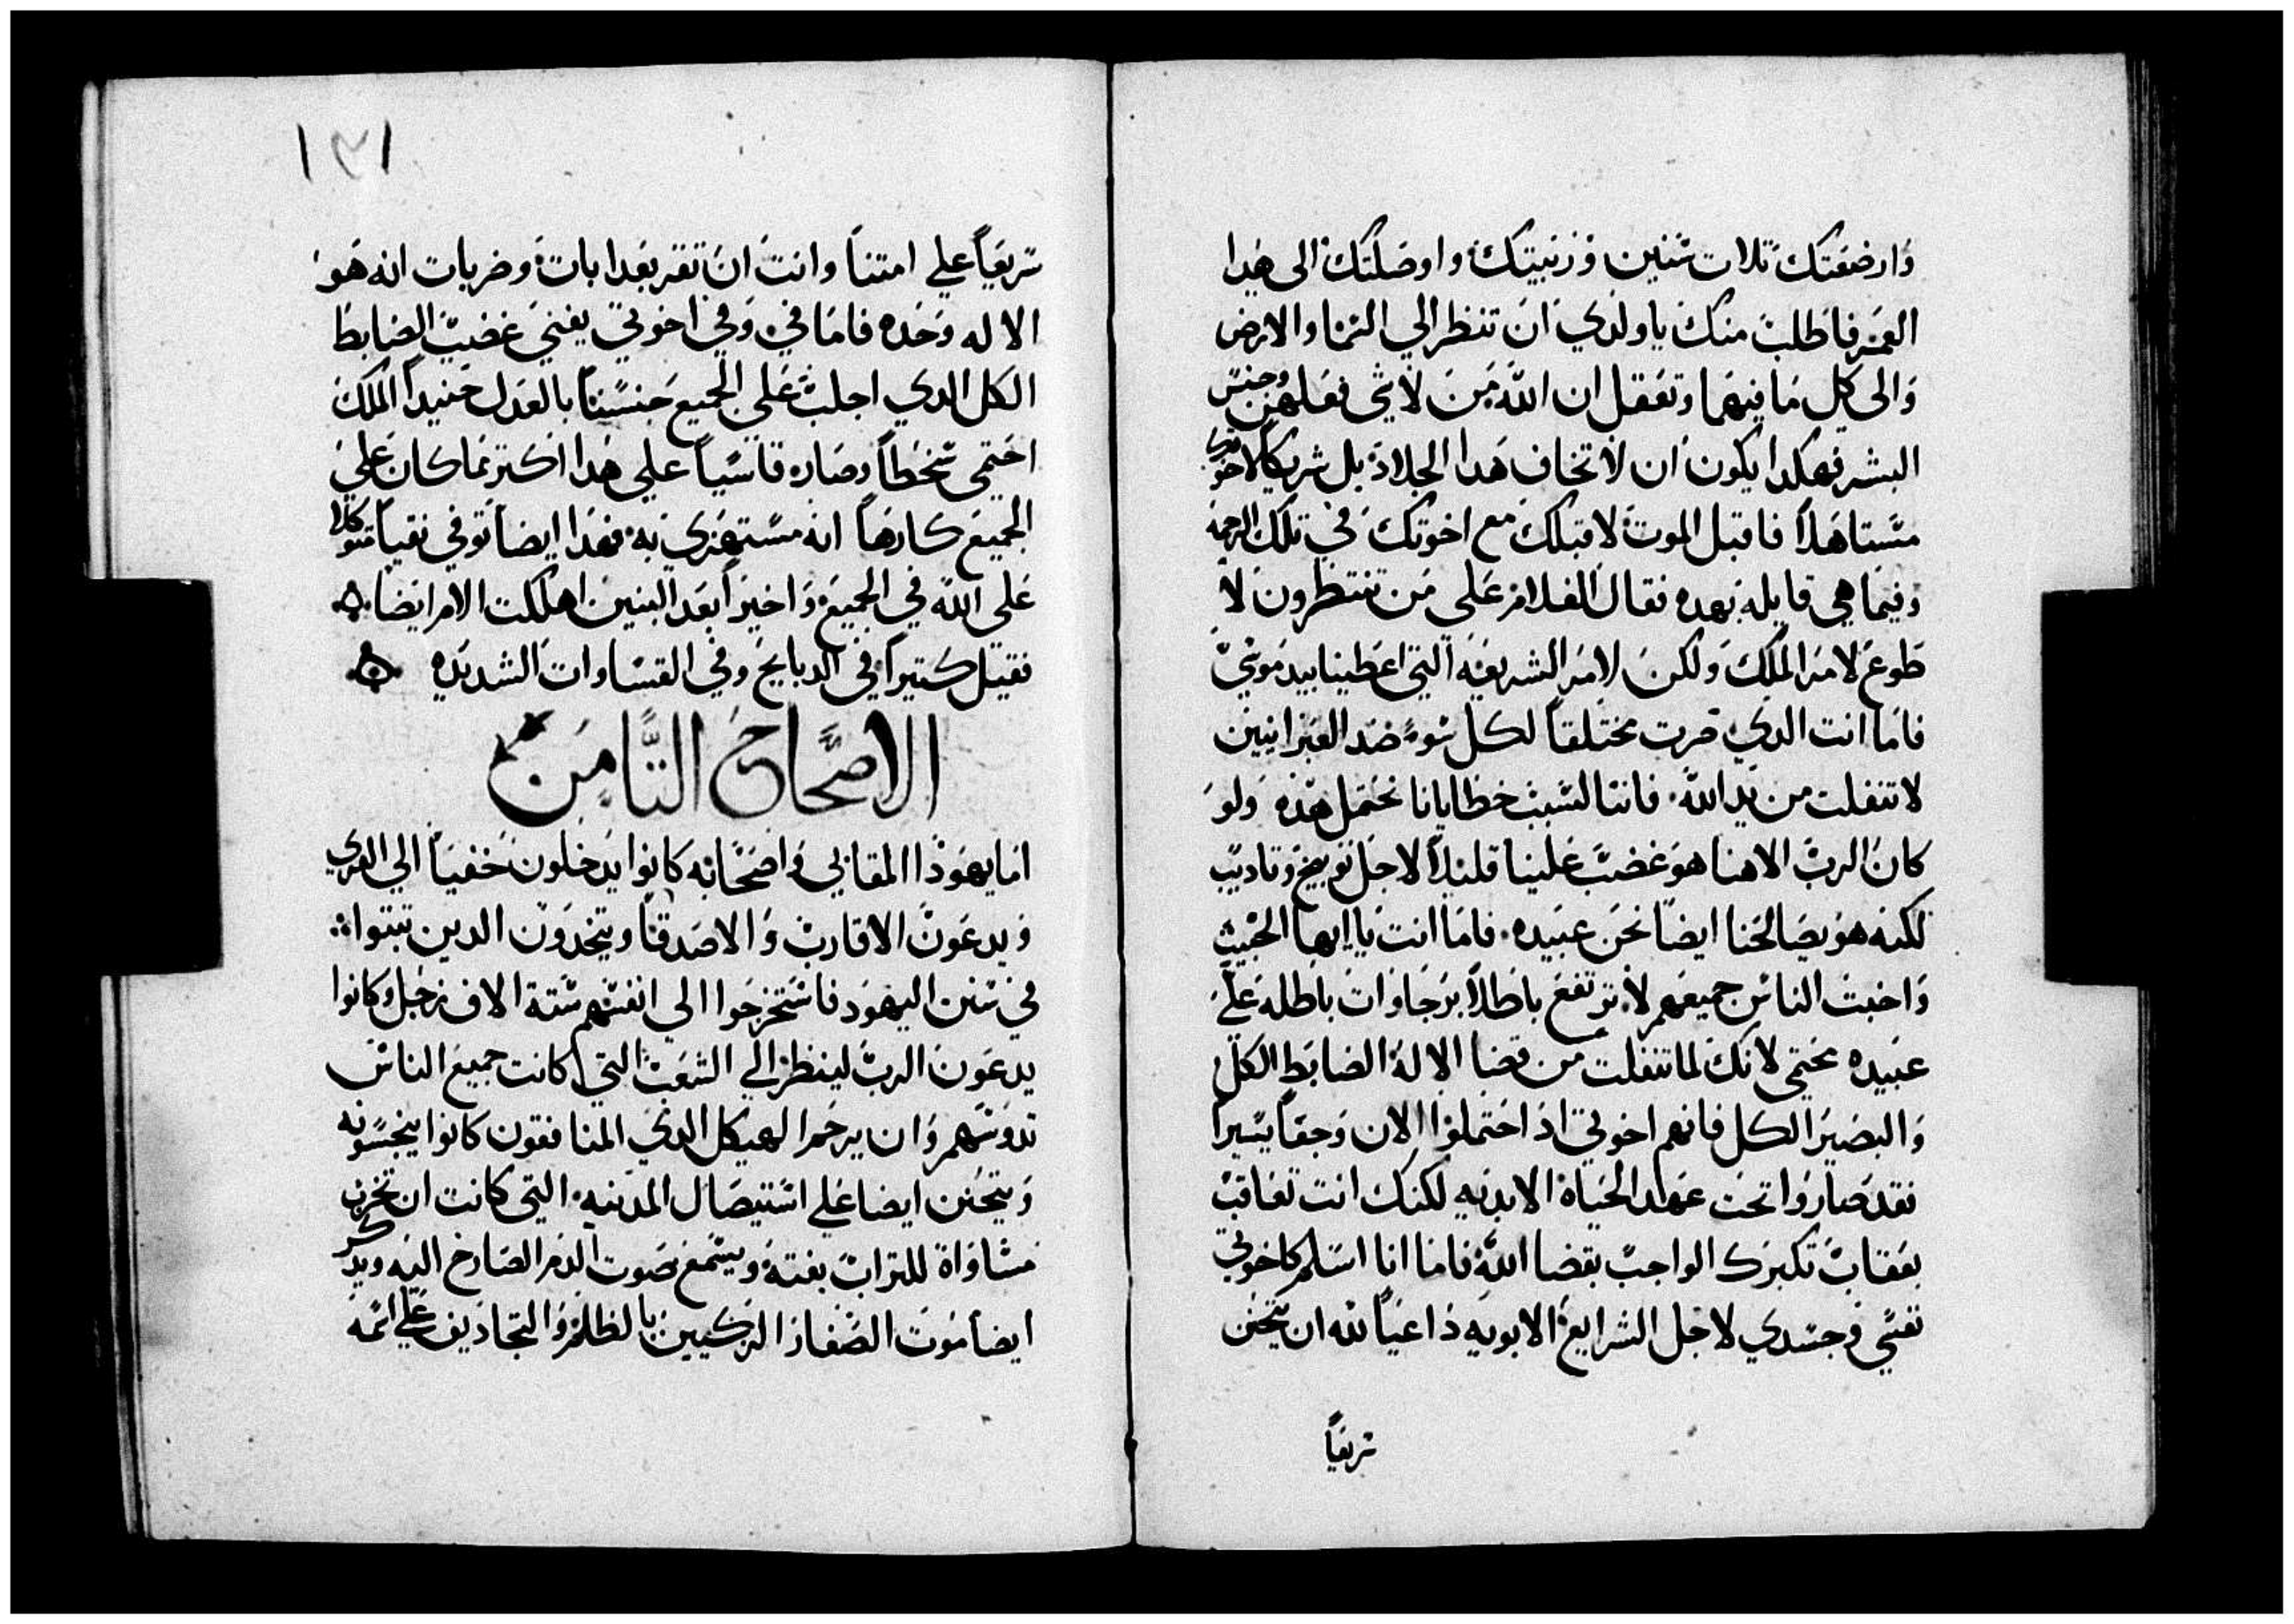 وارضعتك تلات سنين وزبيتك واوصلتك الى هدا
العمر فاطلب منك ياولدي ان تنظر الي السما والارض
والى كل ما فيهما وتعقل ان الله من لا شي فعلهن وجنس
البشر فهكدا يكون ان لا تخاف هدا الجلاد بل شريكا لاخوتك
مستاهلا فاقبل الموت لاقبلك مع اخوتك في تلك الرحمه
وفيما هي قايله بهده فقال الغلام على من تنتظرون لا
طوع لامر الملك ولكن لامر الشريعه التي اعطينا بيد موسي
فاما انت الدي صرت مختلقا لكل سوء ضد العبرانيين
لا تنفلت من يد الله فاننا لسبب خطايانا نحتمل هذه ولو
كان الرب الاهنا هو غضب علينا قليلا لاجل توبيخ وتاديب
لكنه هو يصالحنا ايضا نحن عبيده فاما انت يا ايها الخبيث
واخبت الناس جميعهم لا ترتفع باطلا برجاوات باطله علي
عبيده محتمي لانك لما تنفلت من قضا الاله الضابط الكل
والبصير الكل فانهم اخوتي اد احتملوا الان وجعا يسيرا
فقد صاروا تحت عهد الحياة الابديه لكنك انت تعاقب
بعقاب تكبرك الواجب بقضا الله فاما انا اسلم كاخوتي
نفسي وجسدي لاجل الشرايع الابويه داعيا لله ان يتحنن
سريعا
١٣١
سريعا علي امتنا وانت ان تقر بعدابات وضربات انه هو
الاله وحده فاما في وفي اخوتي يفني غضب الضابط
الكل الدي اجلب علي الجميع جنسنا بالعدل حنيدا الملك
احتمى سخطا وصاره قاسيا علي هدا اكتر مما كان علي
الجميع كارها انه مستهزي به فهدا ايضا توفي نقيا متوكلا
على الله في الجميع واخيرا بعد البنين اهلكت الام ايضا
فقيل كتيرا في الدبايح وفي القساوات الشديده
الاصحاح التامن
اما يهوذا المقابي واصحابه كانوا يدخلون خفيا الي القري
ويدعون الاقارب والاصدقا ويتخدون الدين تبتوا
في سنن اليهود فاستخرجوا الي انفسهم ستة الاف رجل وكانوا
يدعون الرب لينظر الي الشعب التي كانت جميع الناس
تدوسهم وان يرحم الهيكل الدي المنافقون كانوا ينجسونه
ويتحنن ايضا علي استيصال المدينه التي كانت ان تخرب
مساواة للتراب بغتة ويسمع صوت الدم الصارخ اليه ويدكر
ايضا موت الصغار الزكيين بالظلم والتجاديف علي اسمه